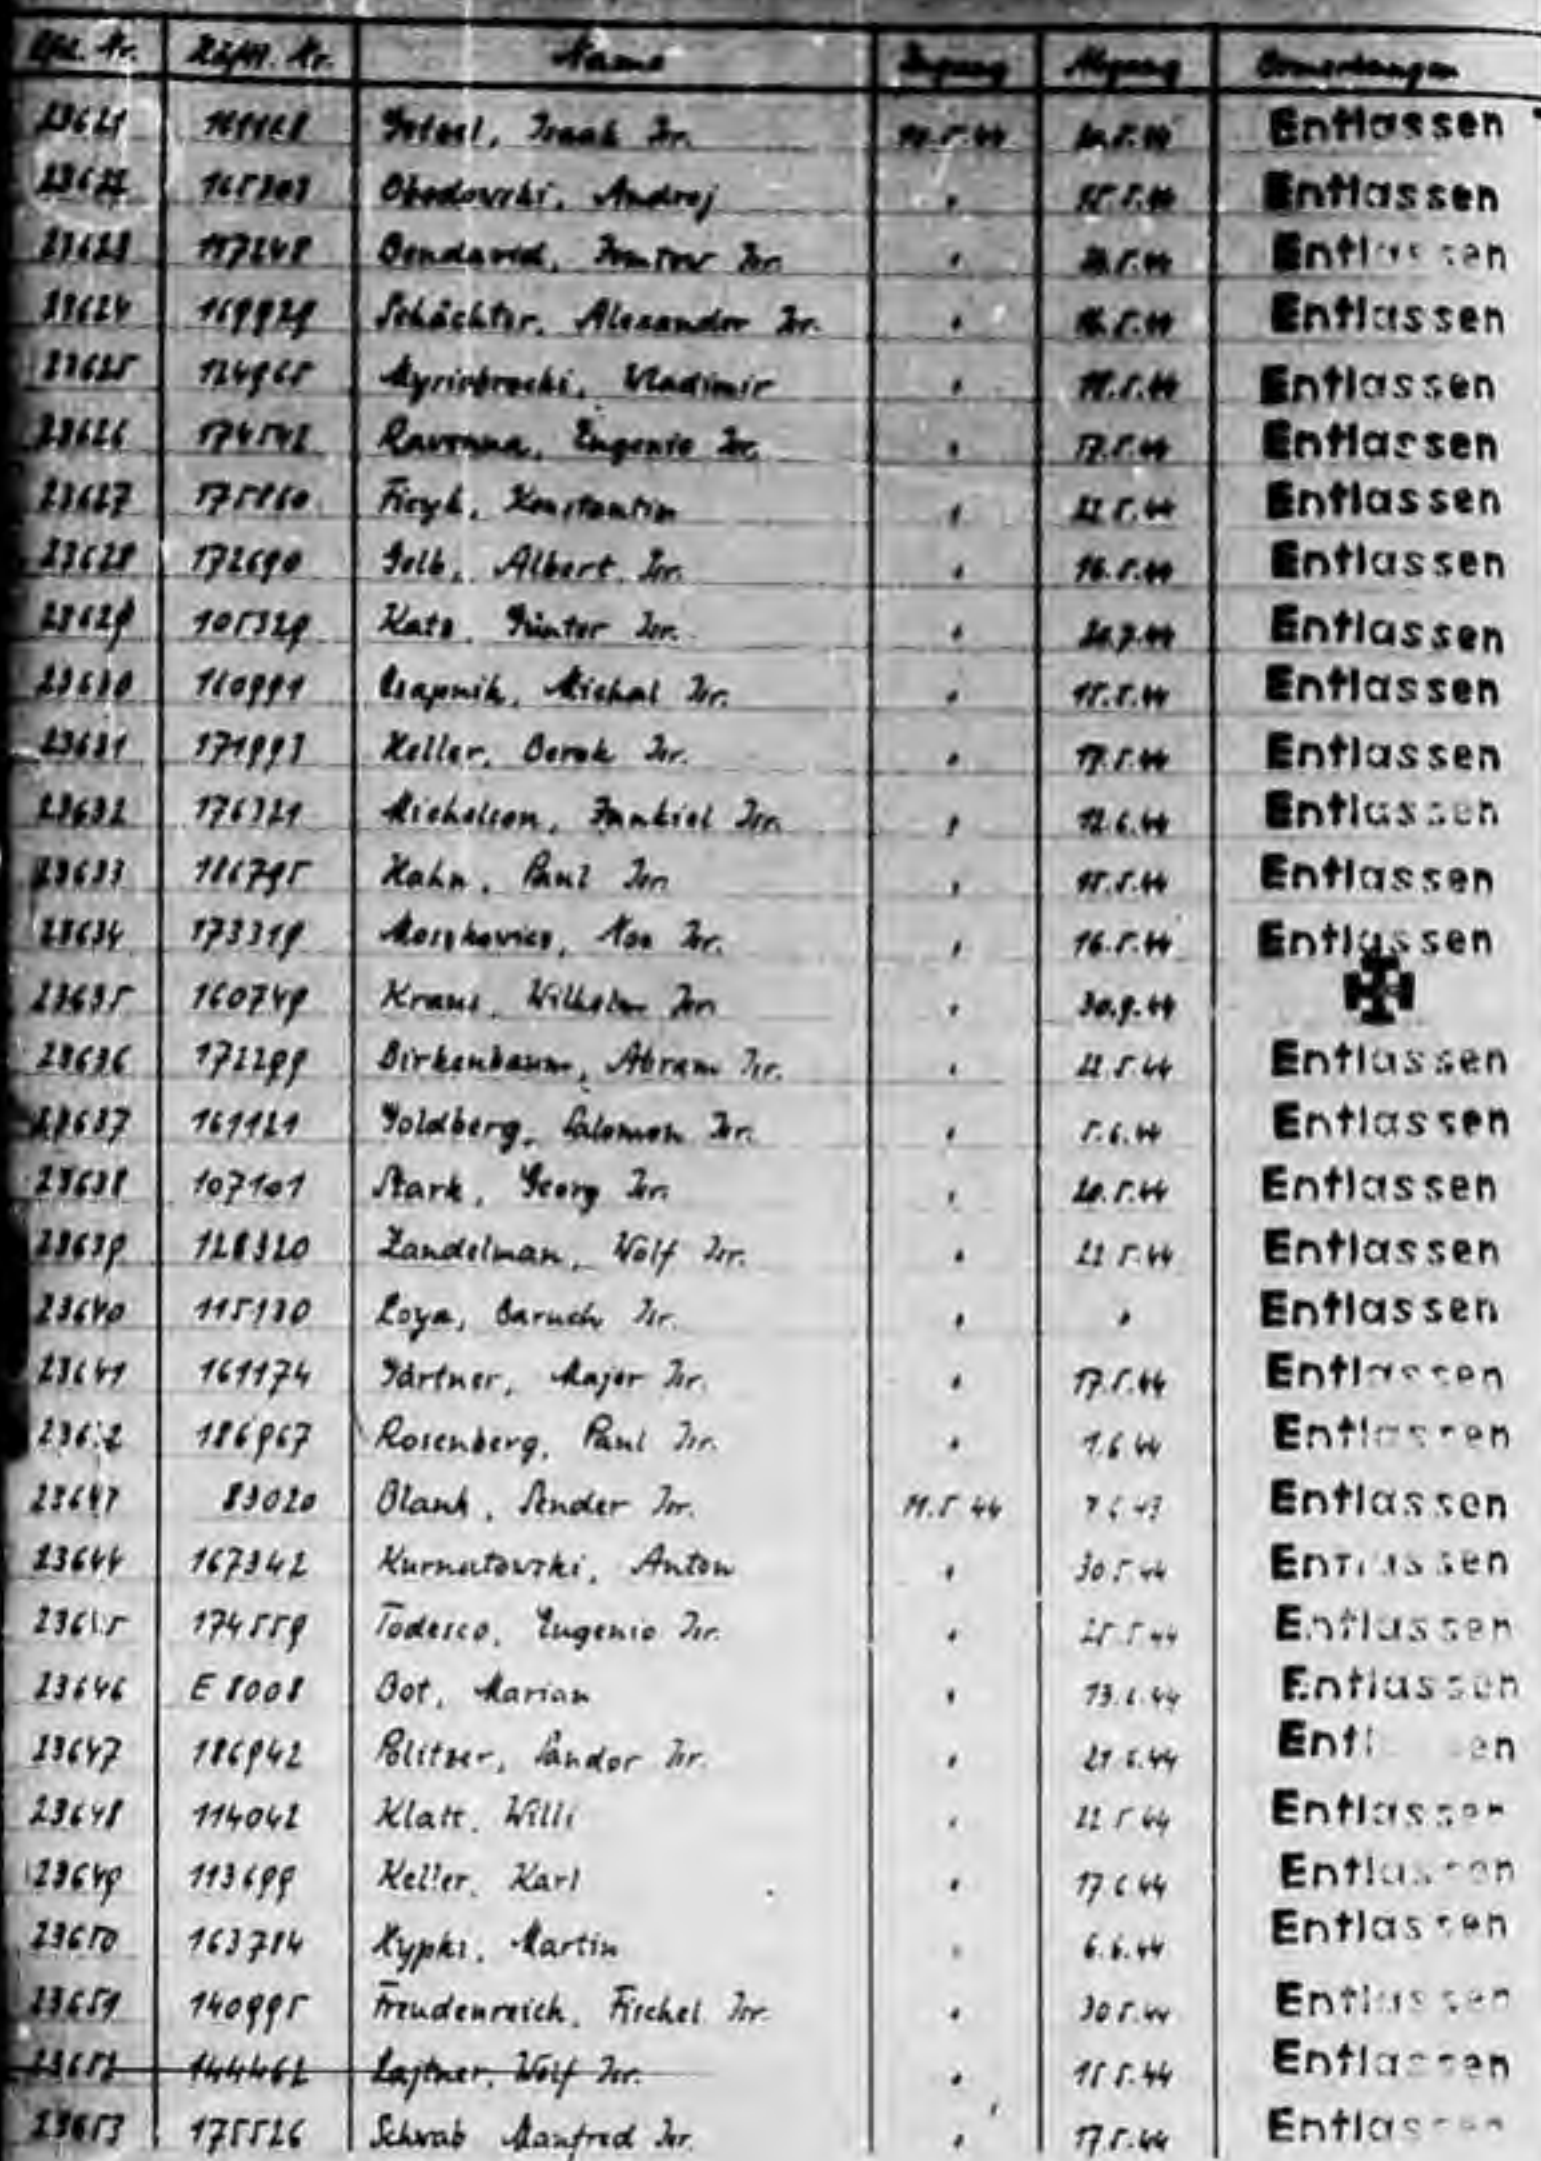 Lfd. Nr. Häftl. Nr. Name Zugang Abgang Bemerkungen
23621 Isaak Isr. Entlassen
23622 Andrej Entlassen
23623 Bendavid, Isr. Entlassen
23624 169929 Schächter, Alexander Isr. " 16.5.44 Entlassen
23625 Wladimir " Entlassen
23626 174542 Ravenna, Eugenio Isr. " 17.5.44 Entlassen
23627 Konstantin " 22.5.44 Entlassen
23628 172690 Gelb, Albert Isr. " 16.5.44 Entlassen
23629 105329 Katz, Günter Isr. " 20.7.44 Entlassen
23630 Michal Isr. " 15.5.44 Entlassen
23631 171993 Keller, Berek Isr. " 17.5.44 Entlassen
23632 176321 Michelson, Jankiel Isr. " 12.6.44 Entlassen
23633 186795 Hahn, Paul Isr. " 15.5.44 Entlassen
23634 173319 Moszkowicz, Isr. " 16.5.44 Entlassen
23635 160749 Kraus, Wilhelm Isr. " 30.9.44
23636 172299 Birkenbaum, Abram Isr. " 22.5.44 Entlassen
23637 161121 Goldberg, Salomon Isr. " 5.6.44 Entlassen
23638 107101 Stark, Georg Isr. " 20.5.44 Entlassen
23639 128320 Zandelman, Wolf Isr. " 22.5.44 Entlassen
23640 115130 Loya, Baruch Isr. " " Entlassen
23641 161174 Gärtner, Majer Isr. " 17.5.44 Entlassen
23642 186967 Rosenberg, Paul Isr. " 1.6.44 Entlassen
23643 83020 Blank, Sender Isr. 11.5.44 Entlassen
23644 167342 Kurnatowski, Anton " 30.5.44 Entlassen
23645 174559 Todesco, Eugenio Isr. " 25.5.44 Entlassen
23646 E 8008 Bot, Marian " 13.6.44 Entlassen
23647 186942 Politzer, Sandor Isr. " 21.6.44 Entlassen
23648 114042 Klatt, Willi " 22.5.44 Entlassen
23649 113699 Keller, Karl " 17.6.44 Entlassen
23650 163784 Kypki, Martin " 6.6.44 Entlassen
23651 140995 Freudenreich, Fischel Isr. " 30.5.44 Entlassen
23652 144462 Lajtner, Wolf Isr. " 15.5.44 Entlassen
23653 175526 Schwab Manfred Isr. " 17.5.44 Entlassen